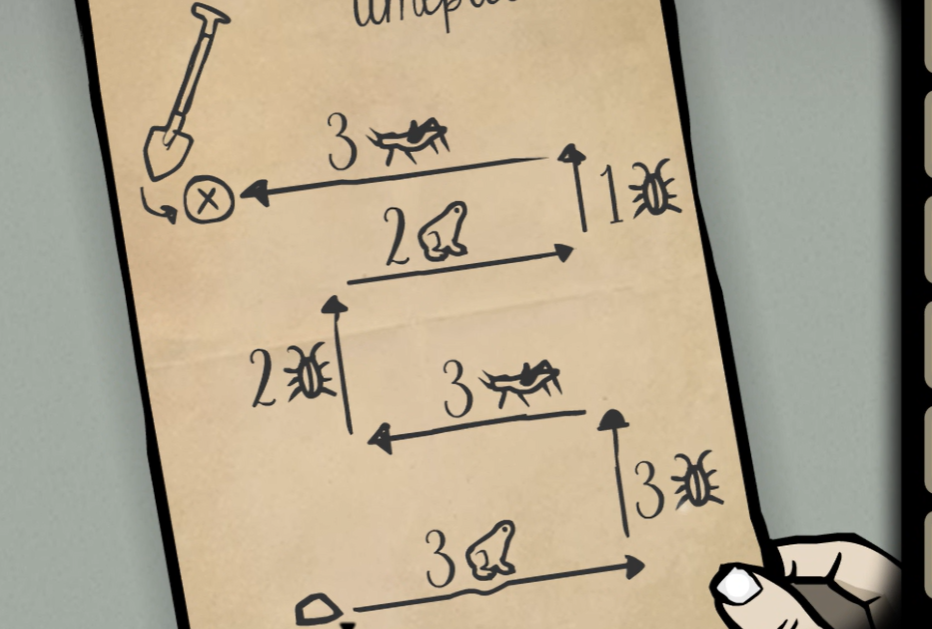 3
1
2
2
3
3
3